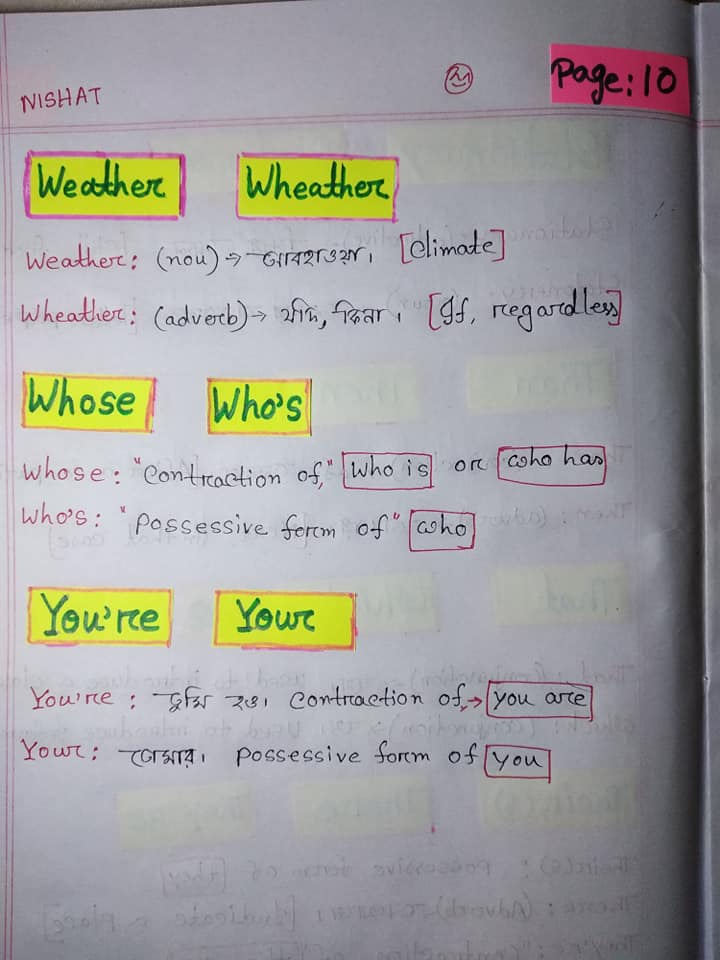 NISHAT
Page: 10
Weather Wheather
Weather: (nou) → আবহাওয়া। [climate]
Wheather: (adverb) → যদি, কিনা। [If, regardless]
Whose Who's
Whose: "Contraction of," who is or who has
Who's: "Possessive form of" who
You're Your
You're: তুমি হও। Contraction of, → you are
Your: তোমার। Possessive form of you